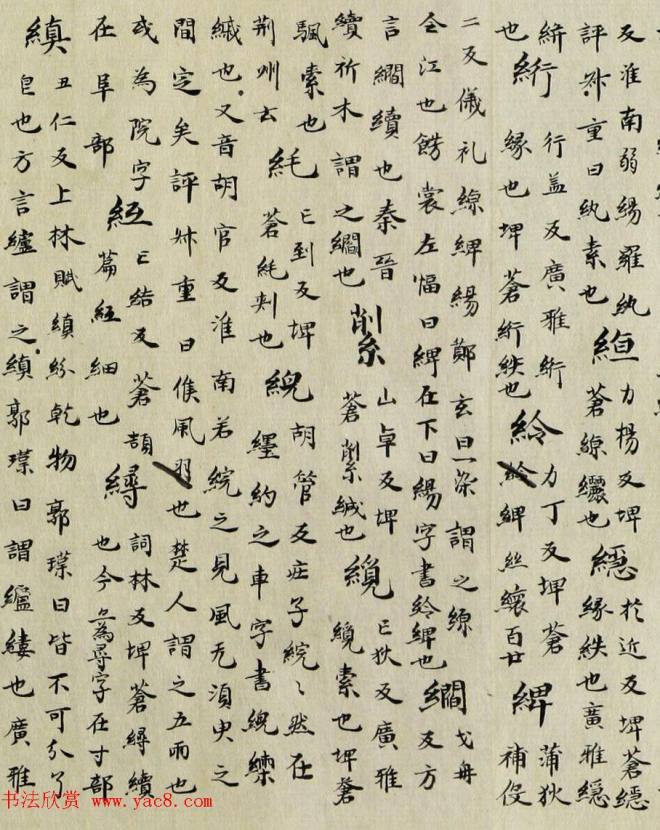 反淮南弱緆羅紈評叔重曰紈素也絙力揚反埤蒼綡纚也繶於近反埤蒼繶緣紩也廣雅繶
絣也絎行孟反廣雅絎緣也埤蒼絎紩也紟力丁反埤蒼紟綼絲繀百廿綼蒲狄補役
二反儀礼縓綼緆鄭玄曰一染謂之縓仝江也餝裳左幅曰綼在下曰緆字書紟綼也繝戈舟反方
言繝續也秦晉續祈木謂之繝也山卓反埤蒼緘也亡狄反廣雅索也埤蒼
颿索也荆州云紣亡到反埤蒼紣刾也綄胡管反庄子綄〻然在纆約之車字書綄
緘也又音胡官反淮南若綄之見風无湏臾之間定矣評叔重曰候風羽也楚人謂之五兩也
或為院字在阜部亡結反蒼頡篇細也㝷詞林反埤蒼續也今亦為尋字在寸部
縝丑仁反上林賦縝紛軋物郭璞曰皆不可分了皃也方言纑謂之縝郭璞曰謂纑縷也廣雅
书法欣赏 www.yac8.com